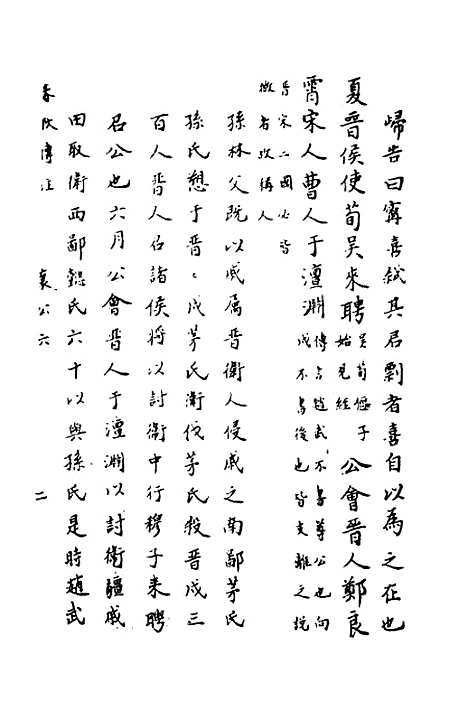 歸告曰甯喜弒其君剽者喜自以為之在也
夏晉侯使荀吳來聘吳荀偃子始見經 公會晉人鄭良
霄宋人曹人于澶淵傳言趙武不書尊公也向戍不書後也皆支離之說
晉宋二國必皆微者故稱人
孫林父既以戚屬晉衛人侵戚之南鄙茅氏
孫氏愬于晉〻戍茅氏衛伐茅氏殺晉戍三
百人晉人召諸侯將以討衛中行穆子來聘
召公也六月公會晉人于澶淵以討衛疆戚
田取衛西鄙懿氏六十以與孫氏是時趙武
襄公六
二